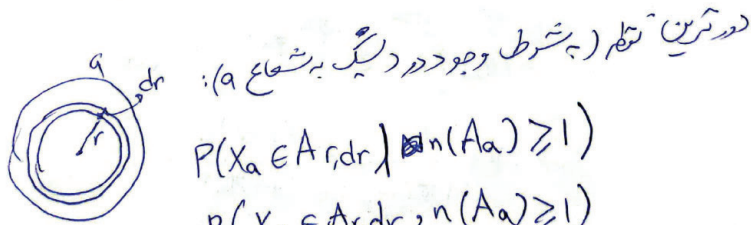 دورترین نقطه (به شرط وجود در دیسک به شعاع a):
a
dr
r
P(Xₐ ∈ A r,dr | n(Aₐ) ≥ 1)
P(Xₐ ∈ A r,dr , n(Aₐ) ≥ 1)